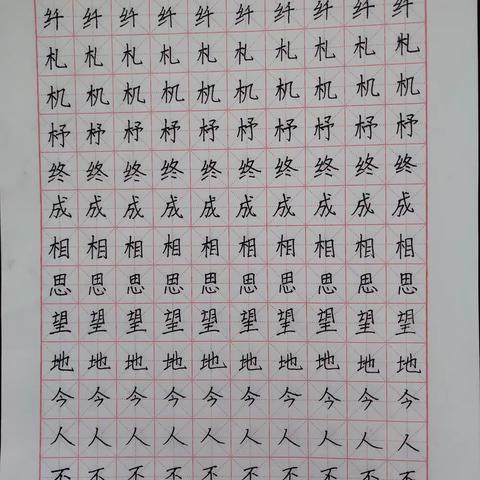 纤纤纤纤纤纤纤纤纤纤
札札札札札札札札札札
机机机机机机机机机机
杼杼杼杼杼杼杼杼杼杼
终终终终终终终终终终
成成成成成成成成成成
相相相相相相相相相相
思思思思思思思思思思
望望望望望望望望望望
地地地地地地地地地地
今今今今今今今今今今
人人人人人人人人人人
不不不不不不不不不不